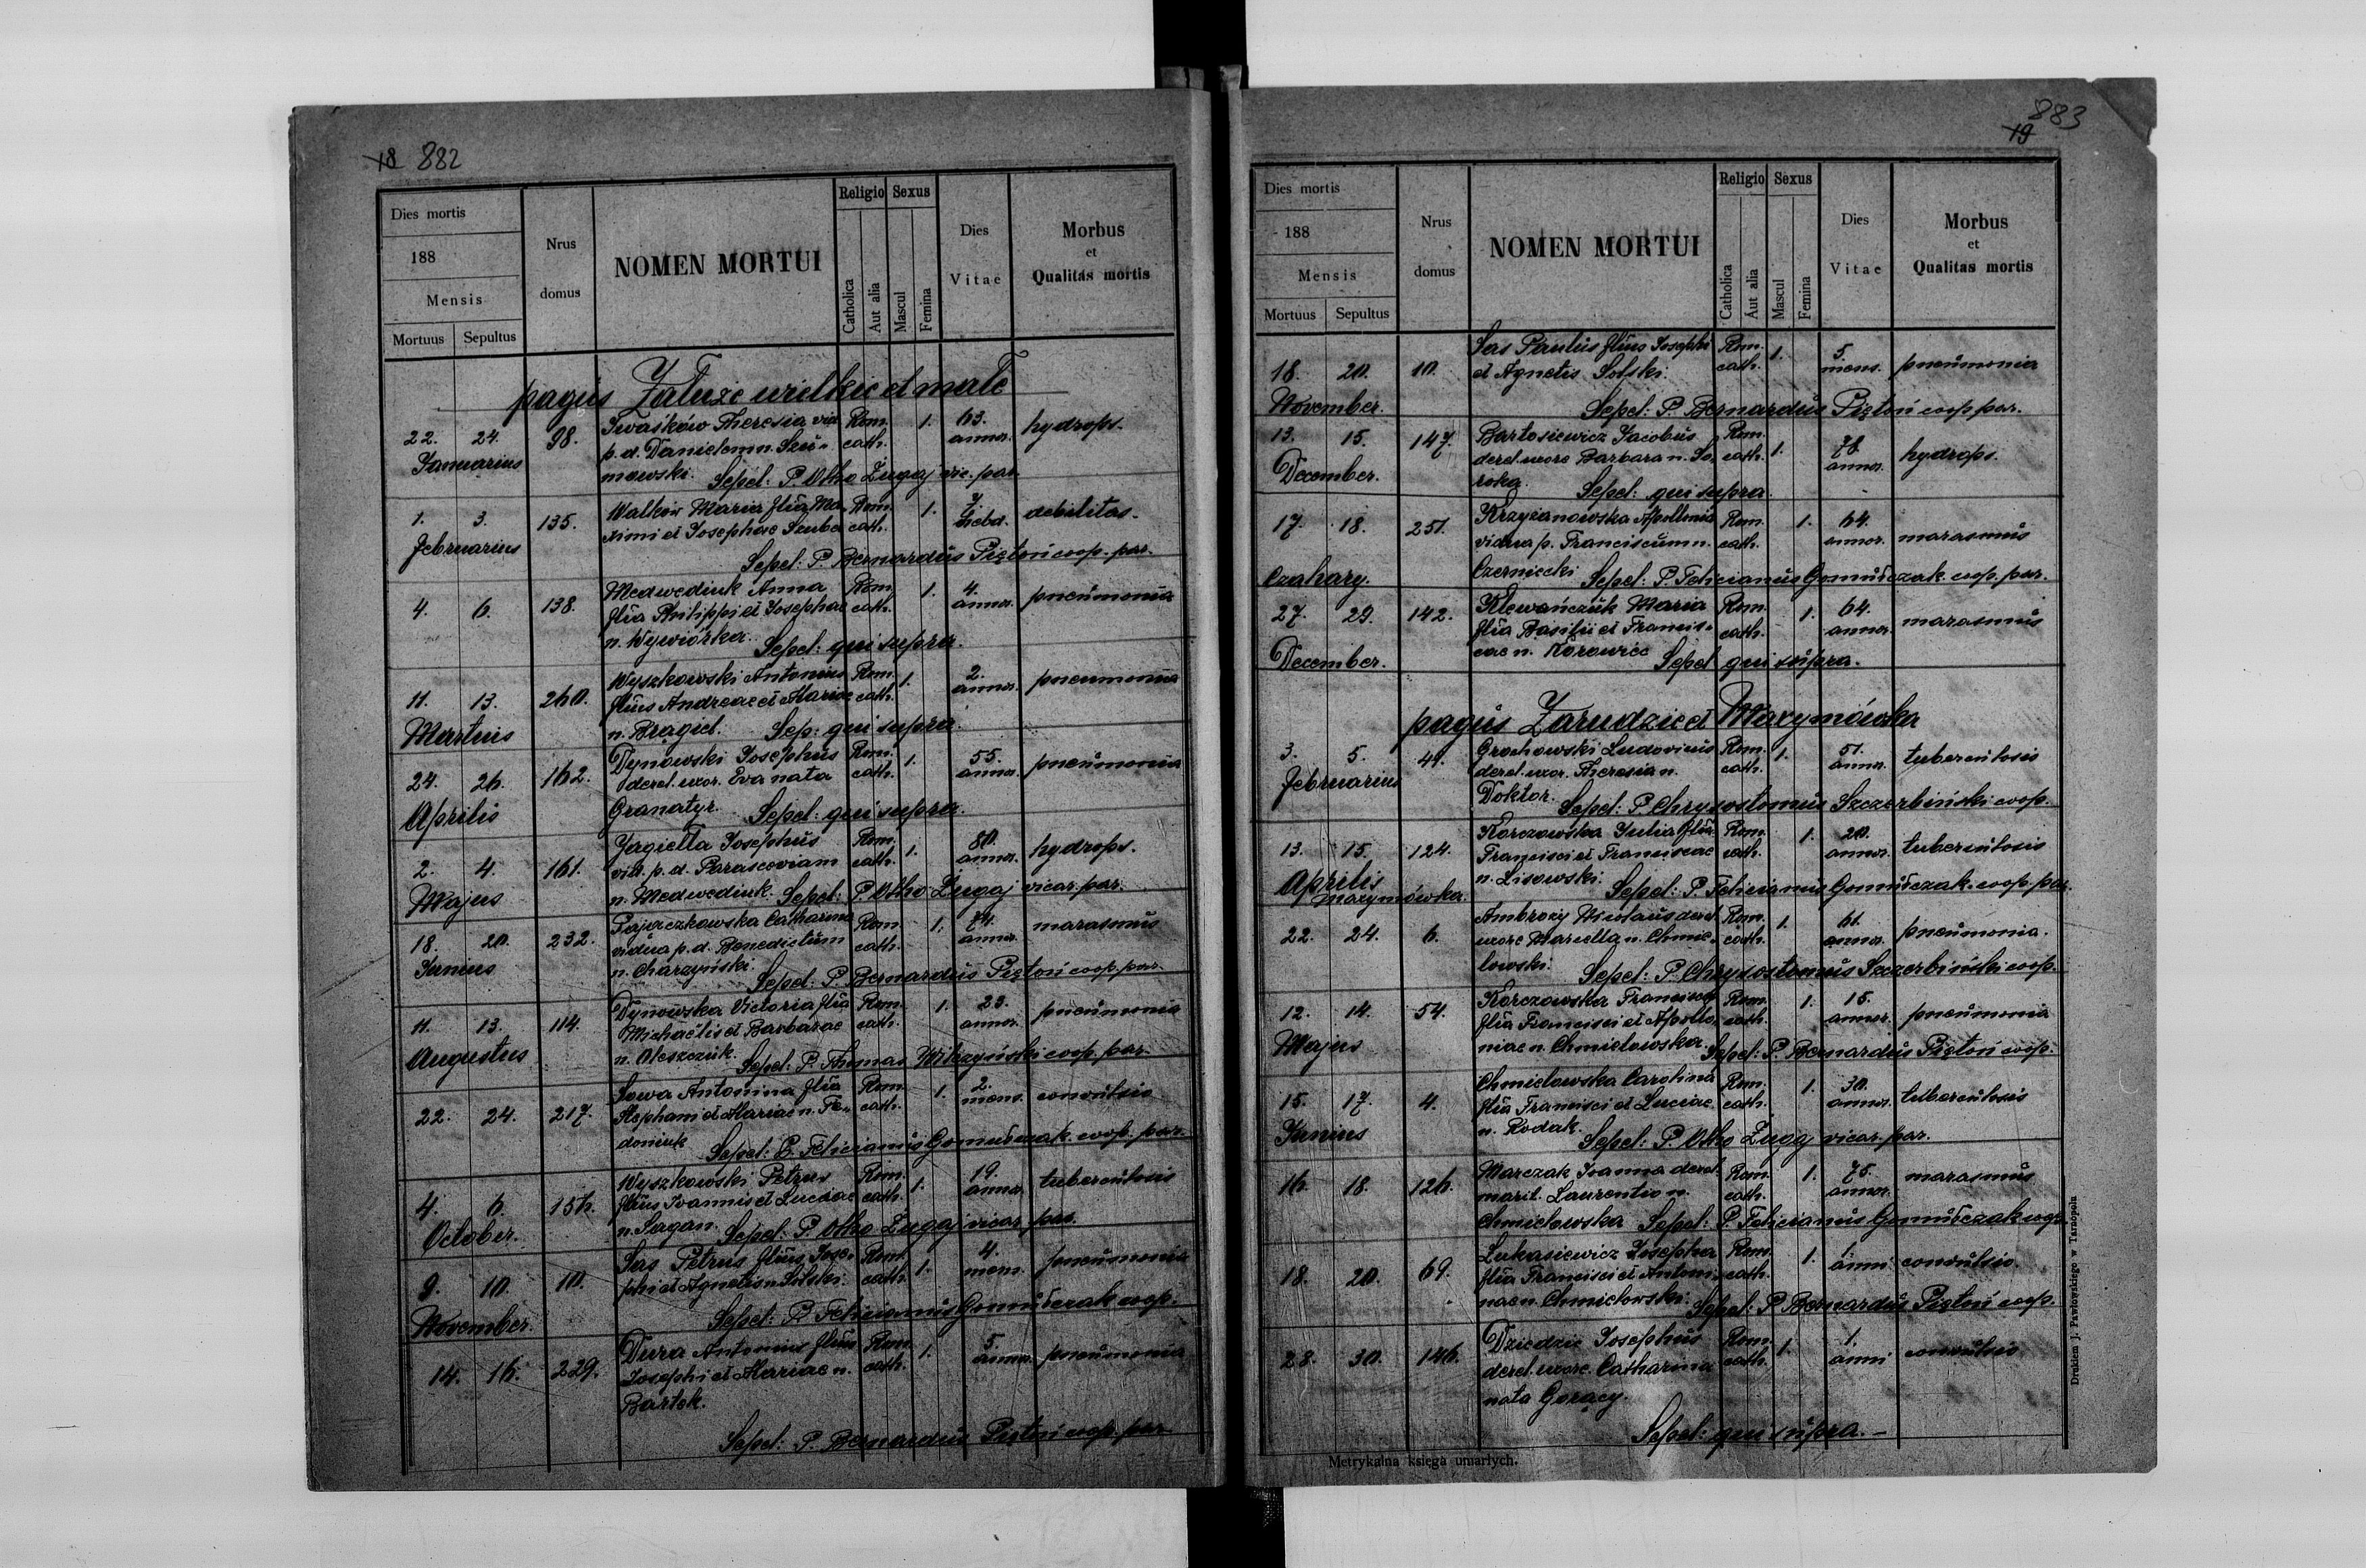 18 882
Dies mortis
188
Mensis
Mortuus Sepultus
Nrus domus
NOMEN MORTUI
Religio Sexus
Catholica Aut alia Mascul Femina
Dies Vitae
Morbus et Qualitas mortis
pagus Załuże wielkie et małe
22. 24. 98. Iwaśków Theresia vid. Rom. 1. 63. hydrops.
Januarius p. d. Danielem n. Szu- cath. annor.
mowski. Sepel: P. Otho Zugaj vic. par.
1. 3. 135. Walków Maria filia Ma- Rom. 1. 7. debilitas.
Februarius ximi et Josephae Szuba cath. hebd.
Sepel: P. Bernardus Piętoń coop. par.
4. 6. 138. Medwediuk Anna Rom. 1. 4. pneumonia
filia Philippi et Josephae cath. annor.
n. Wywiórka. Sepel: qui supra.
11. 13. 260. Wyszkowski Antonius Rom. 1. 2. pneumonia
Martius filius Andreae et Mariae cath. annor.
n. Brągiel. Sep: qui supra.
24. 26. 162. Dynowski Josephus Rom. 1. 55. pneumonia
Aprilis derel. uxor. Eva nata cath. annor.
Granatyr. Sepel: qui supra.
2. 4. 161. Jagiełła Josephus Rom. 1. 80. hydrops.
Majus vid. p. d. Parasceviam cath. annor.
n. Medwediuk. Sepel: P. Otho Zugaj vicar. par.
18. 20. 232. Pajączkowska Catharina Rom. 1. 74. marasmus
Junius vidua p. d. Benedictum cath. annor.
n. Charzyński. Sepel: P. Bernardus Piętoń coop. par.
11. 13. 114. Dynowska Victoria filia Rom. 1. 23. pneumonia
Augustus Michaëlis et Barbarae cath. annor.
n. Oleszczuk. Sepel: P. Thomas Wilczyński coop. par.
22. 24. 217. Sowa Antonina filia Rom. 1. 2. convulsio
Stephani et Mariae n. Fe- cath. mens.
doniuk Sepel: P. Felicianus Gomułczak coop. par.
4. 6. 156. Wyszkowski Petrus Rom. 1. 19. tuberculosis
October. filius Joannis et Luciae cath. annor.
n. Sagan. Sepel: P. Otho Zugaj vicar. par.
9. 10. 10. Sas Petrus filius Jose- Rom. 1. 4. pneumonia
November. phi et Agnetis n. Solski. cath. mens.
Sepel: P. Felicianus Gomułczak coop.
14. 16. 229. Dura Antonius filius Rom. 1. 5. pneumonia
Josephi et Mariae n. cath. annor.
Bartek.
Sepel: P. Bernardus Piętoń coop. par.
883
19
Dies mortis
188
Mensis
Mortuus Sepultus
Nrus domus
NOMEN MORTUI
Religio Sexus
Catholica Aut alia Mascul Femina
Dies Vitae
Morbus et Qualitas mortis
18. 20. 10. Sas Paulus filius Josephi Rom. 1. 5. pneumonia
November. et Agnetis Solski. cath. mens.
Sepel: P. Bernardus Piętoń coop. par.
13. 15. 147. Bartosiewicz Jacobus Rom. 1. 78. hydrops.
December. derel. uxore Barbara n. So- cath. annor.
roka. Sepel: qui supra.
17. 18. 251. Krzyżanowska Apollonia Rom. 1. 64. marasmus
vidua p. Franciscum n. cath. annor.
Czahary. Czerniecki Sepel: P. Felicianus Gomułczak coop. par.
27. 29. 142. Klewańczuk Maria Rom. 1. 64. marasmus
filia Basilii et Francis- cath. annor.
December. cae n. Korowiec Sepel qui supra.
pagus Zarudzie et Maxymówka
3. 5. 49. Grochowski Ludovicus Rom. 1. 51. tuberculosis
Februarius derel. uxor. Theresia n. cath. annor.
Doktor. Sepel: P. Chrysostomus Szczerbiński coop.
13. 15. 124. Korczowska Julia filia Rom. 1. 20. tuberculosis
Aprilis Francisci et Franciscae cath. annor.
n. Lisowski. Sepel: P. Felicianus Gomułczak coop. par.
Maxymówka.
22. 24. 6. Ambroży Nicolaus derel. Rom. 1. 61. pneumonia.
uxore Marcella n. Chmie- cath. annor.
lowski. Sepel: P. Chrysostomus Szczerbiński coop.
12. 14. 54. Korczowska Francisca Rom. 1. 15. pneumonia
Majus filia Francisci et Apollo- cath. annor.
niae n. Chmielowska. Sepel: P. Bernardus Piętoń coop.
15. 17. 4. Chmielowska Carolina Rom. 1. 30. tuberculosis
Junius filia Francisci et Luciae cath. annor.
n. Rodak. Sepel: P. Otho Zugaj vicar. par.
16. 18. 126. Marczak Joanna derel. Rom. 1. 75. marasmus
marit. Laurentio n. cath. annor.
Chmielowska Sepel: P. Felicianus Gomułczak coop.
18. 20. 69. Łukasiewicz Josepha Rom. 1. 1. convulsio.
filia Francisci et Antoni- cath. anni
nae n. Chmielowski. Sepel: P. Bernardus Piętoń coop.
28. 30. 146. Dziedzic Josephus Rom. 1. 1. convulsio
derel. uxore. Catharina cath. anni
nata Gorący.
Sepel: qui supra.
Metrykalna księga umarłych.
Drukiem J. Pawłowskiego w Tarnopolu